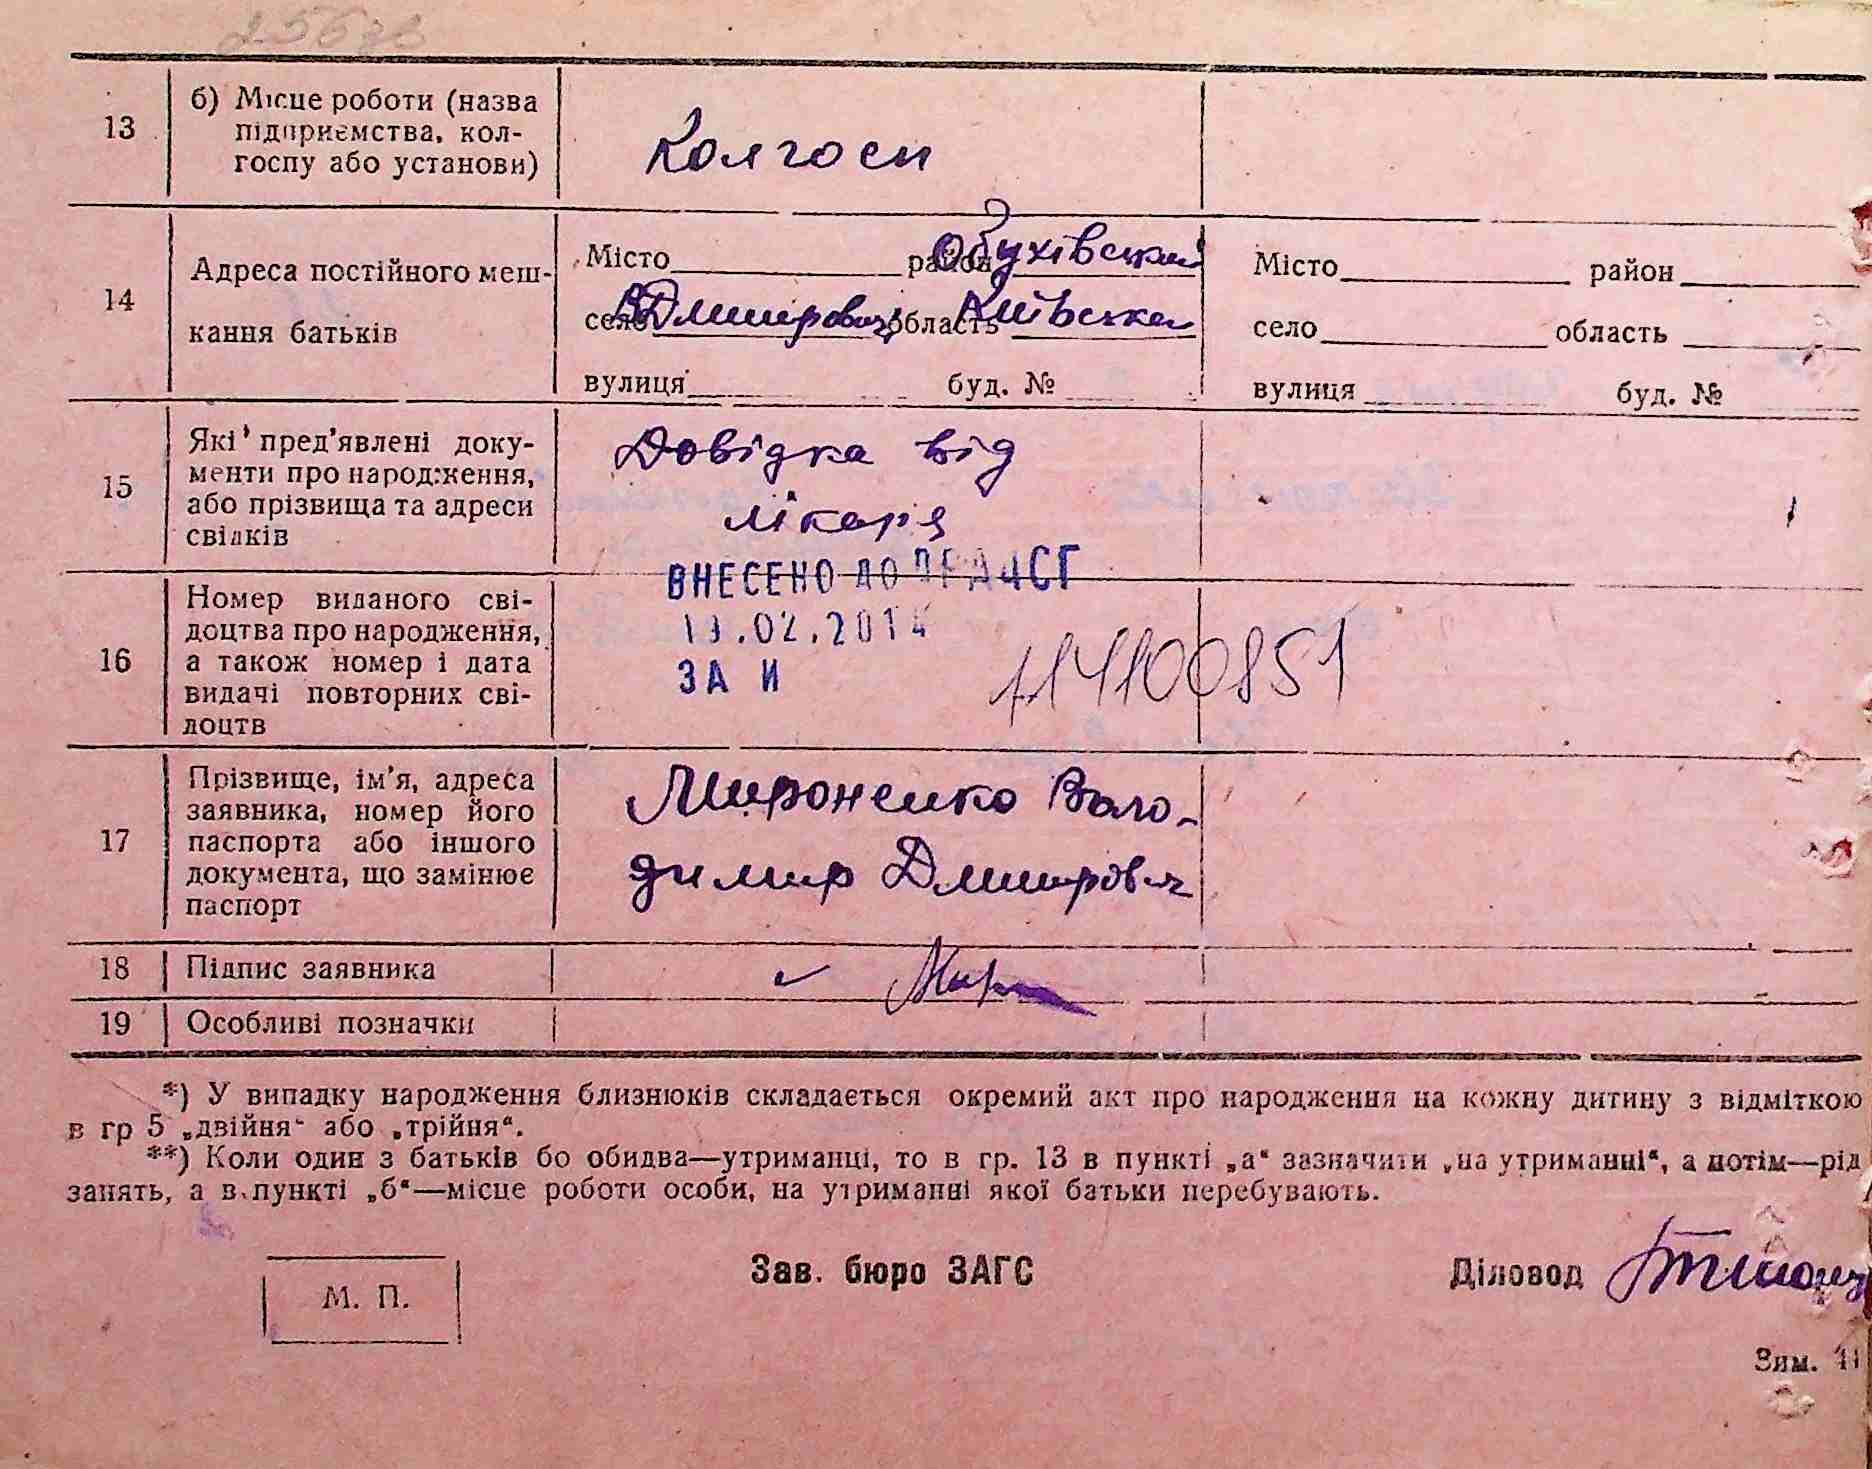 13
б) Місце роботи (назва
підприємства, кол-
госпу або установи)
Колгосп
14
Адреса постійного меш-
кання батьків
Місто район Обухівський
село В Дмитровичі область Київська
вулиця буд. №
Місто район
село область
вулиця буд. №
15
Які пред'явлені доку-
менти про народження,
або прізвища та адреси
свідків
Довідка від
лікаря
ВНЕСЕНО ДО ДРАЦСГ
02.2014
ЗА И
16
Номер виданого сві-
доцтва про народження,
а також номер і дата
видачі повторних сві-
доцтв
17
Прізвище, ім'я, адреса
заявника, номер його
паспорта або іншого
документа, що замінює
паспорт
Мироненко Воло-
димир Дмитрович
18
Підпис заявника
19
Особливі позначки
*) У випадку народження близнюків складається окремий акт про народження на кожну дитину з відміткою
в гр 5 „двійня“ або „трійня“.
**) Коли один з батьків бо обидва—утриманці, то в гр. 13 в пункті „а“ зазначити „на утриманні“, а потім—рід
занять, а в пункті „б“—місце роботи особи, на утриманні якої батьки перебувають.
М. П.
Зав. бюро ЗАГС
Діловод
Зим.